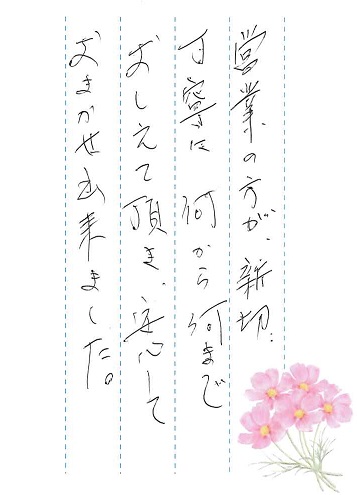 営業の方が、親切、
丁寧に 何から何まで
おしえて頂き、安心して
おまかせ出来ました。